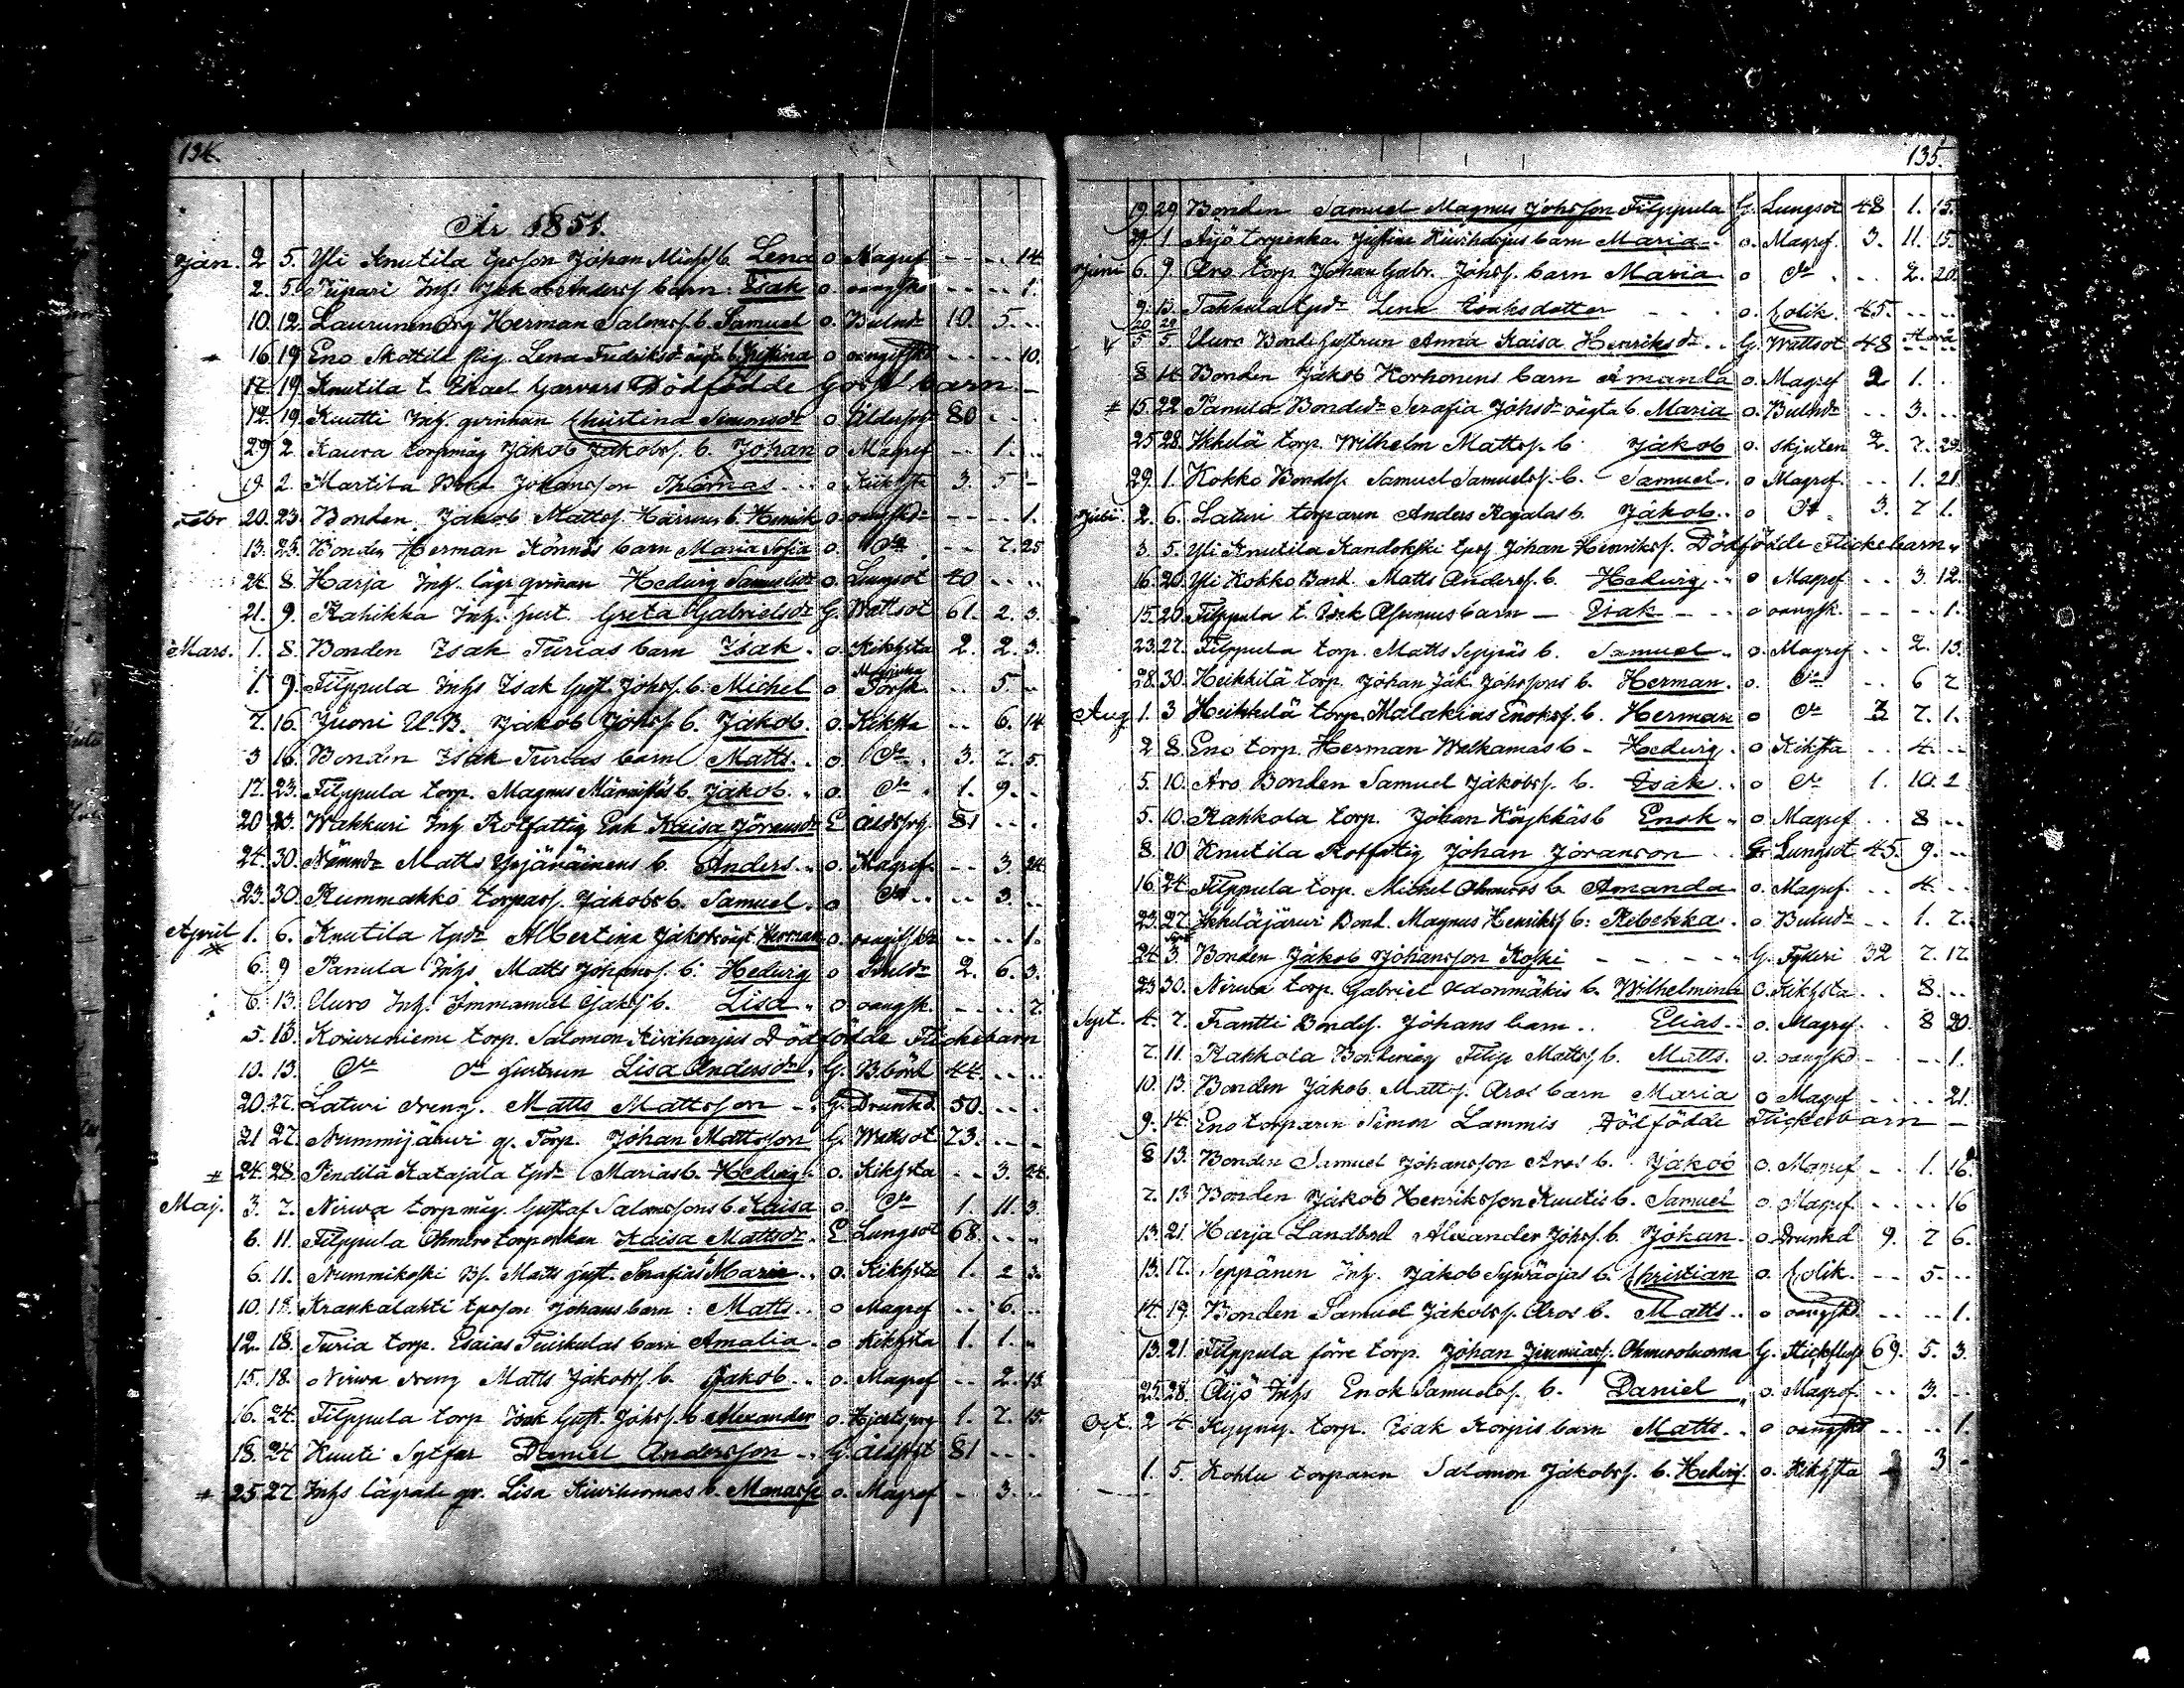 134.
År 1851.
Jan. 2 5. Yli Knutila tprson Johan Michs b. Lena o Magref - - - - 14
2. 5. Tiipari Inhs Jakob Andersf barn Isak o. oangifvn - - - - 1.
10. 12. Laurunen Drg Herman Salomsf. b. Samuel o. Bulnd 10. 5. - -
16 19 Eno Skottila pig. Lena Fredriksdr oägta b. Justina o oangifvn - - - - 10.
17. 19. Knutila t. Israel Garvars Dödfödde Gosse barn -
12. 19. Kuutti Inh. qvinnan Christina Simonsdr o Ålderdoms 80 - -
29 2. Kaura torpmåg Jakob Jakobsf. b. Johan o Magref - - 1. - -
19. 2. Martila Bond Johansson Thomas - - o Kikhsta 3. 5 -
Febr 20. 23. Bonden Jakob Mattsf. b. Henrik o. oangifvn - - - - 1.
13. 25. Bonden Herman Könnös barn Maria Sofia o. Do - - 7. 25
24. 8. Harja Inh. läg. qvinnan Hedvig Samuelsdr o. Lungsot 40 - - - -
21. 9. Rahikka Inh. hust. Greta Gabrielsdr G. Wattsot 61. 2. 3.
Mars. 1. 8. Bonden Isak Turias barn Isak. o. Kikhsta 2. 2. 3.
1. 9. Filppula Inhs Isak Gust. Johsf. b. Michel o Torsk - - 5. - -
7. 16. Juoni U.B. Jakob Johsf. b. Jakob. o. Kikhsta - - 6. 14
3 16. Bonden Isak Turias barn Matts. o. Do. 3. 2. 5.
17. 23. Filppula torp. Magnus b. Jakob. o. Do. 1. 9. -
20 23. Wakkuri Inh Rotfattig Enk Kaisa Jöransdr E Åldrdg. 81 - -
24. 30. Matts Yrjänäinens b. Anders. o. Magref - - 3. 24.
23. 30. Kummakko torparf. Jakobs b. Samuel. o Do - - 3. - -
April 1. 6. Knutila tpdr Albertina Jakobs oägt. Herman o. oangifvn - - - - 1.
6. 9 Panula Inhs Matts Johansf. b. Hedvig o Bulnd 2. 6. 3.
6. 13. Auro Inh. Immanuel Isaksf b. Lisa. o oangfn. - - - - 7.
5. 13. Koivuniemi torp. Salomon Kiviharjus Dödfödde Flickebarn
10. 13. Do Do hustrun Lisa Andersdr. G. B.börd 44. - -
20. 27. Laturi dreng. Matts Mattsson -. G. Drunkd 50. - -
21 27. Nummijärvi g. Torp. Johan Mattsson G. Wattsot 73. - -
# 24. 28. Pendilä Katajala tpdr Marias b. Hedvig. o. Kikhsta - - 3. 24.
Maj. 3. 7. Nirva torpmåg. Gustaf Salomssons b. Kaisa o. Do 1. 11. 3.
6. 11. Filppula Ohmero torpenkan Kaisa Mattsdr. E Lungsot 68. - -
6. 11. Nummikoski Bf. Matts hust. Serafias b Maria. o. Kikhsta 1. 2 3.
10. 18. Krankalahti tprson Johans barn: Matts. o Magref - - 6. - -
12. 18. Turia torp. Esaias Teirikulas barn Amalia. o Kikhsta 1. 1. -
15. 18. Nirva dreng Matts Jakobsf. b. Jakob. o. Magref - - 2. 13.
16. 24. Filppula torp Isak Gust. Johsf. b. Alexander o. 1. 7. 15.
18. 24 Kuuti Sytfar Daniel Andersson. G. Ålderst 81 - -
# 25. 27. Inhs lägrade qv. Lisa Kiviluomas b. Manasse o. Magref - - 3. - -
135.
19. 29 Bonden Samuel Magnus Johsson Filppula G. Lungsot 48 1. 15.
29. 1 Äijö torpenka Justina Kiviharjus barn Maria. o. Magref. 3. 11. 15.
Juni 6. 9. Aro torp. Johan Gabr. Johsf. barn Maria o Do - - 2. 20.
9. 13. Takkula tpdr Lena Isaksdotter - - - o. Colik. 45. - -
5 5. Uuro Bond. hustrun Anna Kaisa Henriksdr. G. Wattsot 48
8 14. Bonden Jakob Korhonens barn Amanda o. Magref 2 1. - -
# 15. 22. Panula Bondedr Serafia Johsdr oägta b. Maria o. Bulnd - - 3. - -
25. 28. Ikkelä torp. Wilhelm Mattsf. b. Jakob o. skjuten 2. 7. 29.
29. 1. Kokko Bondsf. Samuel Samuelsf. b. Samuel. o Magref. - - 1. 21.
Julii 2. 6. Laturi torparen Anders Rajalas b. Jakob. o Do. 3. 7 1.
3. 5. Yli Knutila Kandolski tprf Johan Henriksf. Dödfödde Flickebarn.
16. 20. Yli Kokko Bond. Matts Andersf. b. Hedvig. o Magref - - 3. 12.
15. 20. Filppula t. Isak barn - Isak - - o oangfn. - - - - 1.
23. 27. Filppula torp. Matts Seppäs b. Samuel. o. Magref - - 2. 13.
28. 30. Heikkilä torp. Johan Jak. Johssons b. Herman. o. Do - - 6 2
Aug. 1. 3 Heikkilä torp. Malakias Enoksf. b. Herman o Do 3 7. 1.
2 8. Eno torp. Herman Walkamas b. Hedvig. o Kikhsta - - 4. - -
5. 10. Aro Bonden Samuel Jakobsf. b. Isak. o Do 1. 10. 2
5. 10. Kakkola torp. Johan Köykkäs b Enok. o Magref - - 8 - -
8. 10 Knutila Rotfattig Johan Jöransson. G. Lungsot 45. 9. - -
16. 24. Filppula torp. Michel Ohmeros b. Amanda. o. Magref. - - 4. - -
23. 27. Ikkeläjärvi Bond. Magnus Henriksf. b: Rebekka. o. Bulnd - - 1. 7.
24. 3. Bonden Jakob Johansson Koski - - - G. 32 7. 17.
23 30. Nirva torp. Gabriel b. Wilhelmina o. Kikhsta - - 8. - -
Sept. 4. 7. Frantti Bondsf. Johans barn. Elias. o. Magref. - - 8 20.
7. 11. Kakkola Bondemåg Filip Mattsf. b. Matts. o. oangfn - - - - 1.
10. 13. Bonden Jakob Mattsf. Aros barn Maria o Magref - - - - 21.
9. 14. Eno torparen Simon Lammis Dödfödde Flickebarn -
8 13. Bonden Samuel Johansson Aros b. Jakob o. Magref - - 1. 16.
7. 13. Bonden Jakob Henriksson Kuutis b. Samuel o. Magref. - - - - 16
13. 21. Harja Landbond Alexander Johsf. b. Johan. o. Drunkd 9. 7 6.
13. 17. Seppänen Inh. Jakob b. Christian o. Colik. - - 5. - -
14. 19. Bonden Samuel Jakobsf. Aros b. Matts. o oangfn - - - - 1.
13. 21. Filppula förre torp. Johan Jeremiasf. Ohmeroluoma G. Stickfluss 69. 5. 3.
25. 28. Äijö Inhs Enok Samuelsf. b. Daniel. o. Magref - - 3. - -
Oct. 2 4. Kyyny. torp. Isak Korpis barn Matts. o oangfn - - - - 1.
1. 5. Kohlu torparen Salomon Jakobsf. b. Hedvig. o. Kikhsta 3 -